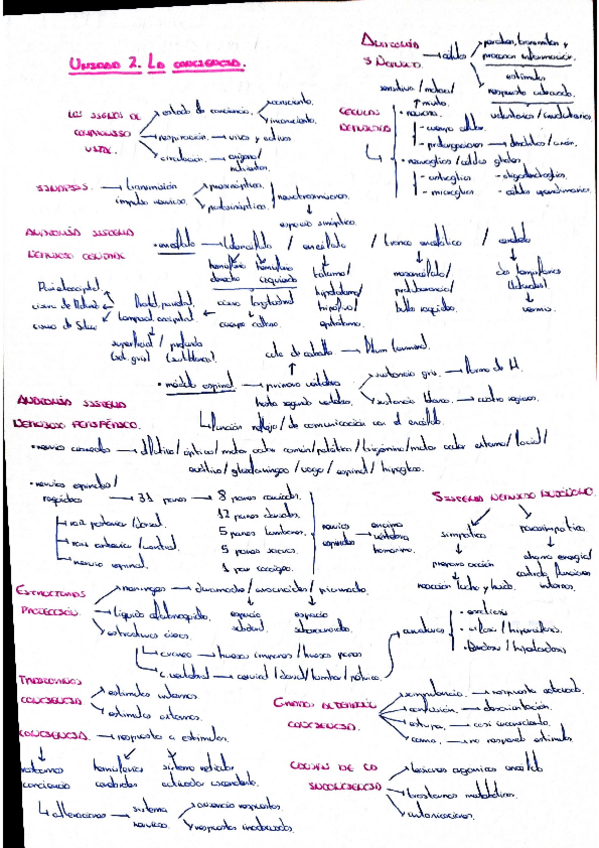 UNIDAD 2. LA CONCIENCIA.
ANATOMÍA → células → perciben, transmiten y
S. NERVIOSO procesan información.
estímulos
respuesta adecuada.
sensitiva / motora / mixta. voluntarias / involuntarias
CÉLULAS • neurona.
NERVIOSAS - cuerpo celular.
- prolongaciones → dendritas / axón.
• neuroglias / células gliales
- astroglias - oligodendroglias.
- microglias - células ependimarias.
LOS SIGNOS DE → estado de conciencia → consciente.
COMPROMISO inconsciente.
VITAL → respiración → vivos y activos
→ circulación → oxígeno / nutrientes.
SINAPSIS. → transmisión → presináptica. neurotransmisores.
impulso nervioso. → postsináptica.
espacio sináptico.
ANATOMÍA SISTEMA
NERVIOSO CENTRAL
• encéfalo → / encéfalo / tronco encefálico / cerebelo
hemisferio hemisferio tálamo / mesencéfalo / dos hemisferios
derecho izquierdo hipotálamo / protuberancia /
cisura longitudinal hipófisis / bulbo raquídeo. vermis.
cuerpo calloso. epitálamo.
frontal, parietal,
temporal, occipital
cisura de Rolando
cisura de Silvio
superficial / profunda
(sust. gris) (sust. blanca).
cola de caballo → filum terminal.
• médula espinal → primera vértebra → sustancia gris → forma de H.
hasta segunda vértebra. → sustancia blanca → cuatro regiones.
↳ función refleja / de comunicación con el encéfalo.
ANATOMÍA SISTEMA
NERVIOSO PERIFÉRICO.
• nervios craneales → olfativo / óptico / motor ocular común / patético / trigémino / motor ocular externo / facial /
auditivo / glosofaríngeo / vago / espinal / hipogloso.
• nervios espinales /
raquídeos → 31 pares → 8 pares cervicales.
12 pares dorsales.
5 pares lumbares.
5 pares sacros.
1 par coccígeo.
raíz posterior / dorsal.
raíz anterior / ventral.
nervio espinal.
nervios encima
espinales vértebra
SISTEMA NERVIOSO AUTÓNOMO.
simpático parasimpático
prepara acción ahorra energía /
reacción lucha y huida. controla funciones
internas.
ESTRUCTURAS → meninges → duramadre / aracnoides / piamadre.
PROTECCIÓN → líquido cefalorraquídeo. espacio espacio
subdural subaracnoideo.
→ estructuras óseas.
↳ cráneo → huesos impares / huesos pares
↳ c. vertebral → cervical / dorsal / lumbar / pélvica. → curvaturas
TRASTORNOS → estímulos internos.
CONCIENCIA → estímulos externos.
CONCIENCIA. → respuesta a estímulos.
hemisferios sistema reticular
conciencia cerebrales activador ascendente.
↳ alteraciones → sistema → ausencia respuestas.
nervioso → respuestas inadecuadas.
GRADOS ALTERACIÓN → somnolencia. → respuesta adecuada.
CONCIENCIA. → confusión. → desorientación.
→ estupor. → casi inconsciente.
→ coma. → no responde estímulos.
→ lesiones orgánicas encéfalo
INCONSCIENCIA → trastornos metabólicos.
→ intoxicaciones.